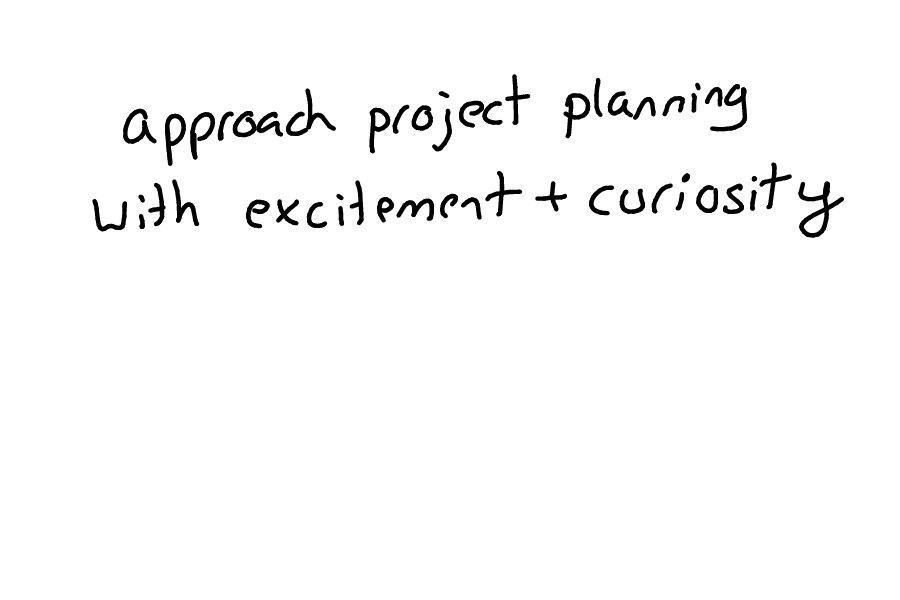 approach project planning
with excitement + curiosity